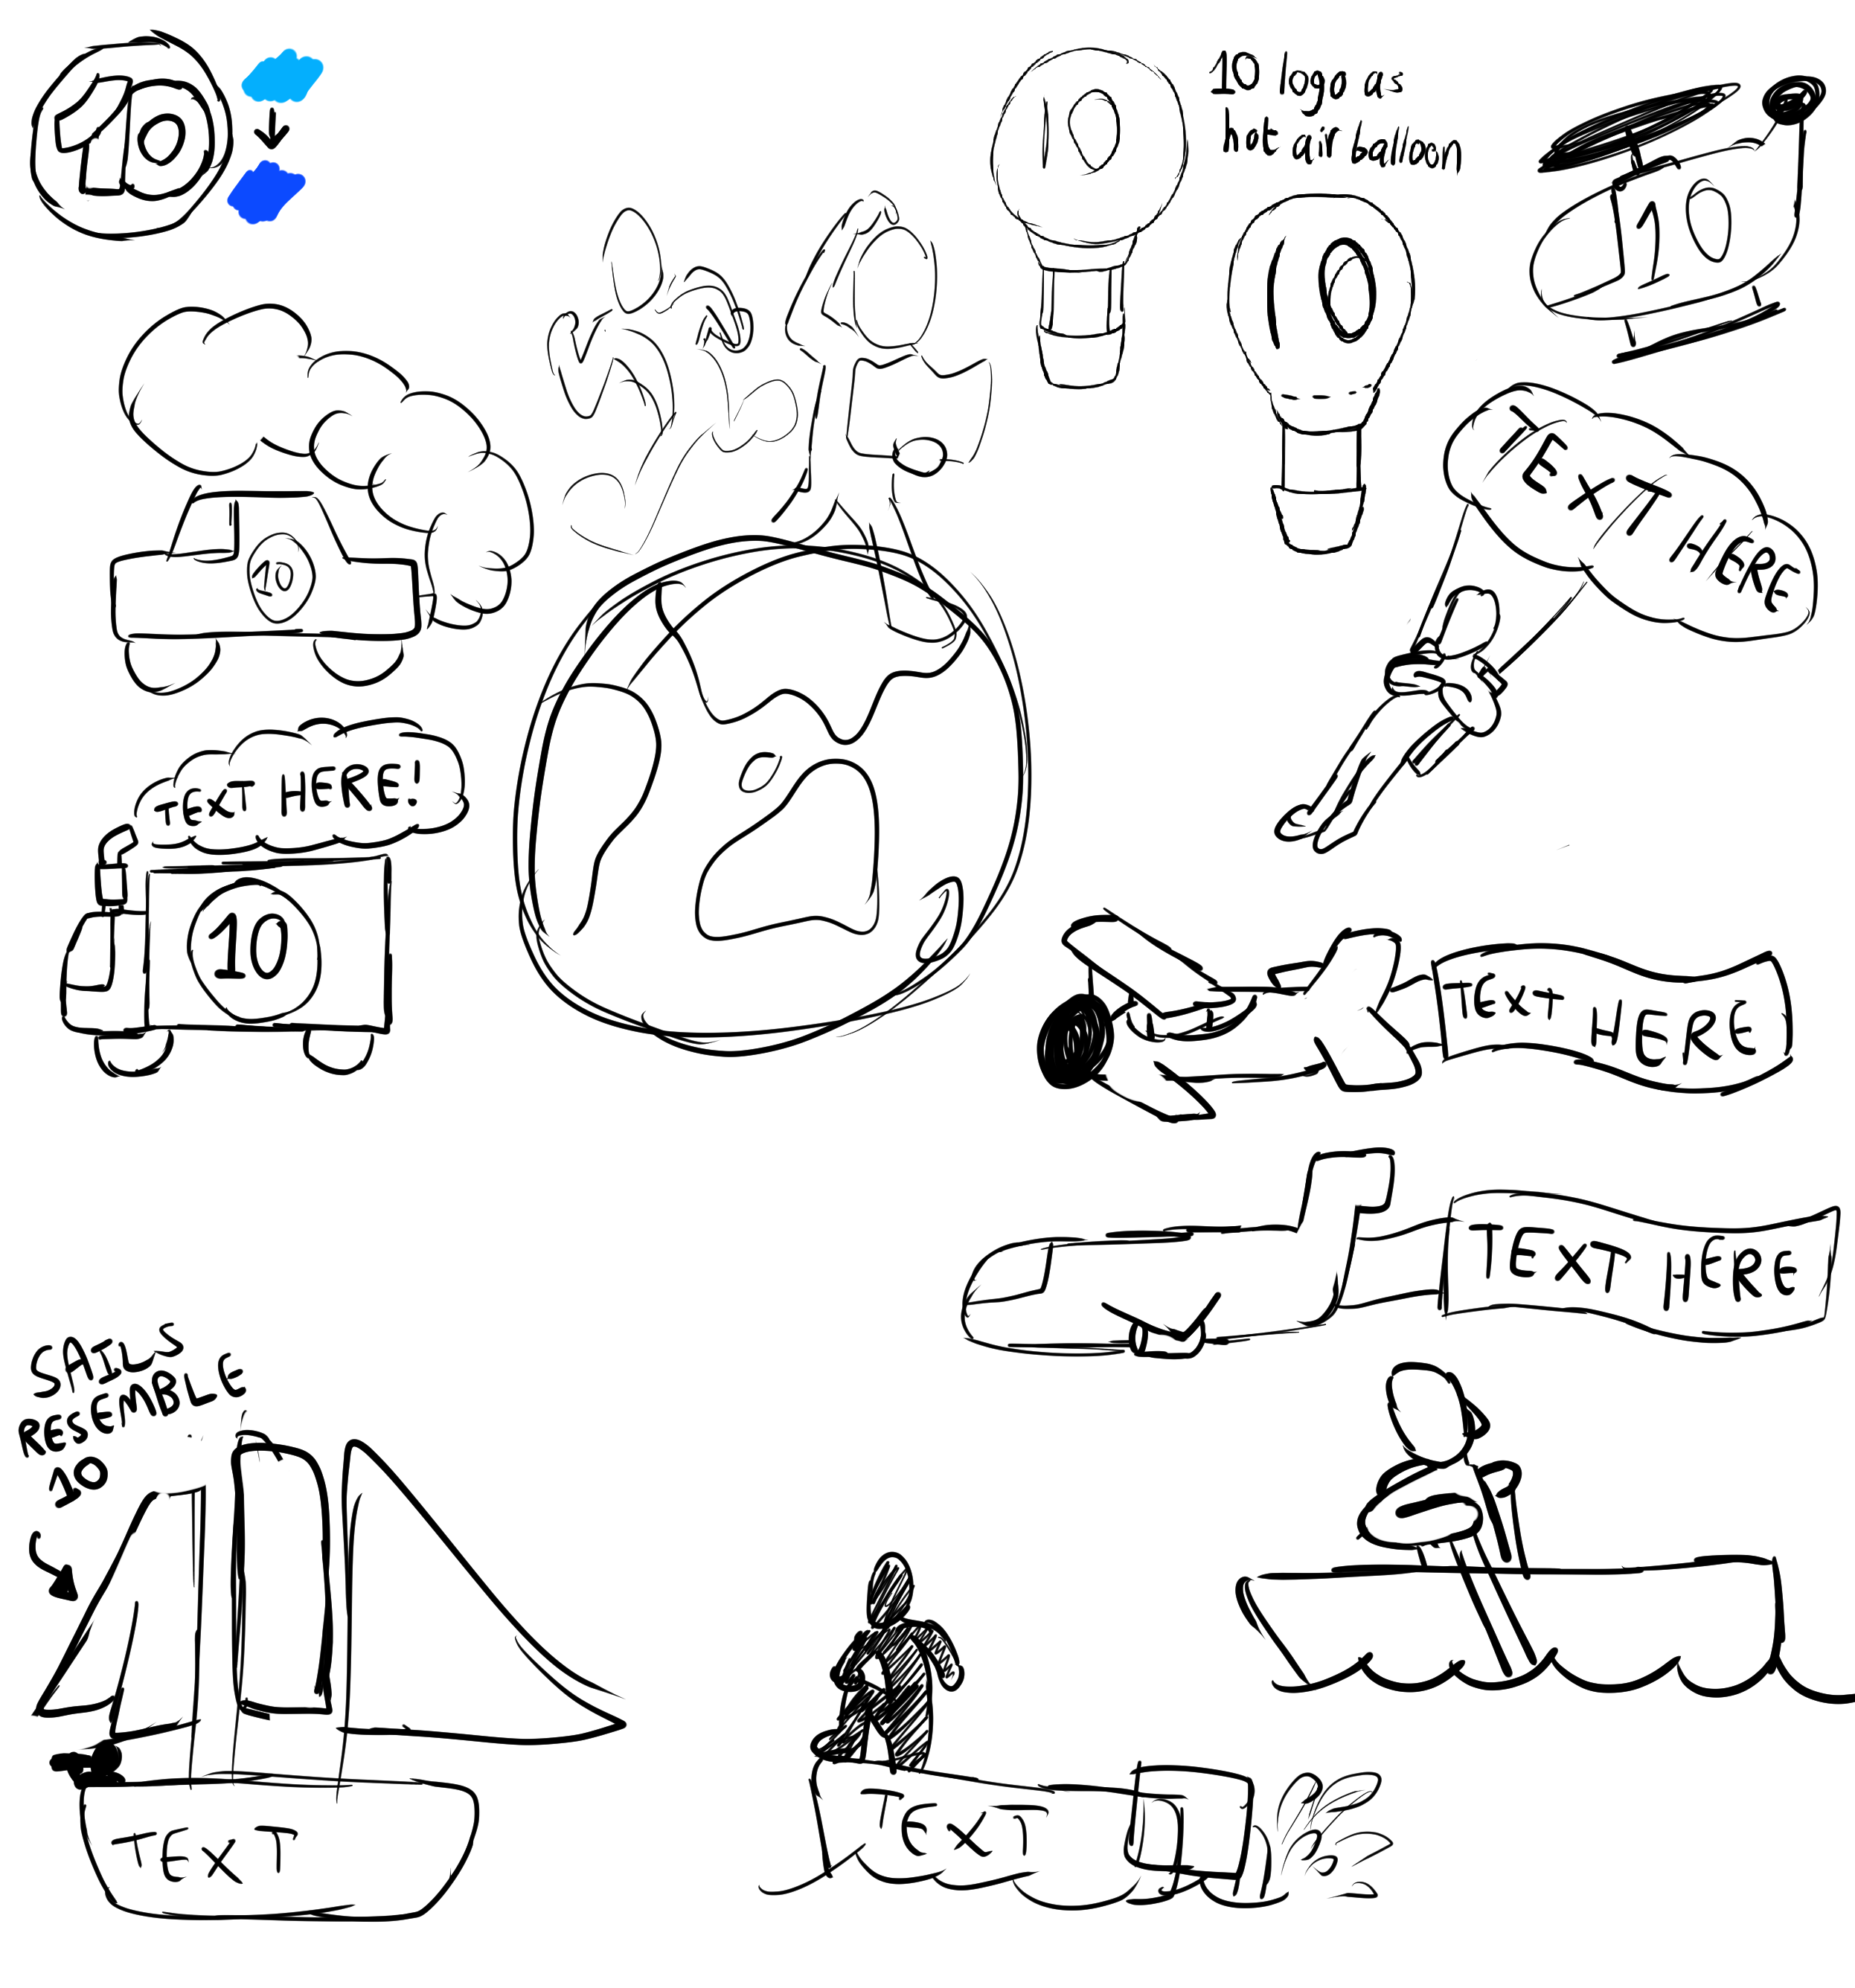 10
10 logo as
hot air balloon
10
10
10
TEXT HERE
10
TEXT HERE!
10
TEXT HERE
TEXT HERE
SAILS
RESEMBLE
10
TEXT
TEXT